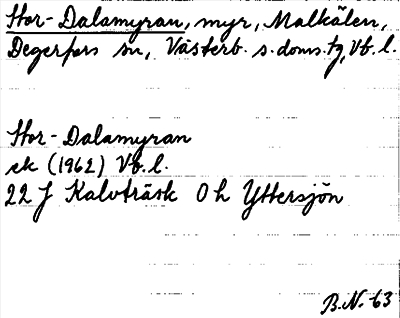 Stor-Dalamyran, myr, Malkälen,
Degerfors sn, Västerb. s. doms. tg, Vb. l.
Stor-Dalamyran
ek (1962) Vb. l.
22 J Kalvträsk 0 h Yttersjön
B.N. 63